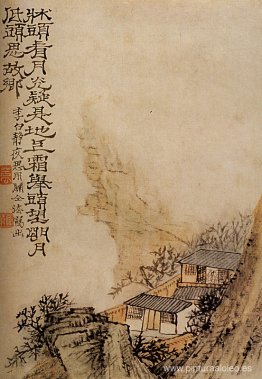 牀頭看月光疑是地上霜舉頭望朙月
低頭思故鄉
李白靜夜思用
www.pinturaaloleo.es